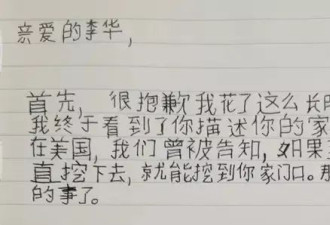 亲爱的李华,
首先, 很抱歉我花了这么长
我终于看到了你描述你的家
在美国, 我们曾被告知, 如果
直挖下去, 就能挖到你家门口。
的事了。